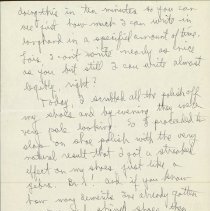 doing this in ten minutes so you can
see just how much I can write in
longhand in a specified amount of time.
I can't write nearly as nice
as you but still I can write almost
legibly, right?
Today, I scrubbed all the polish off
my shoes and by evening they were
very pale looking. So I proceeded to
slap on shoe polish with the very
natural result that I got a streaked
effect on my shoes just like a
zebra. But, as if you know
how many demerits I've already gotten
shoes then